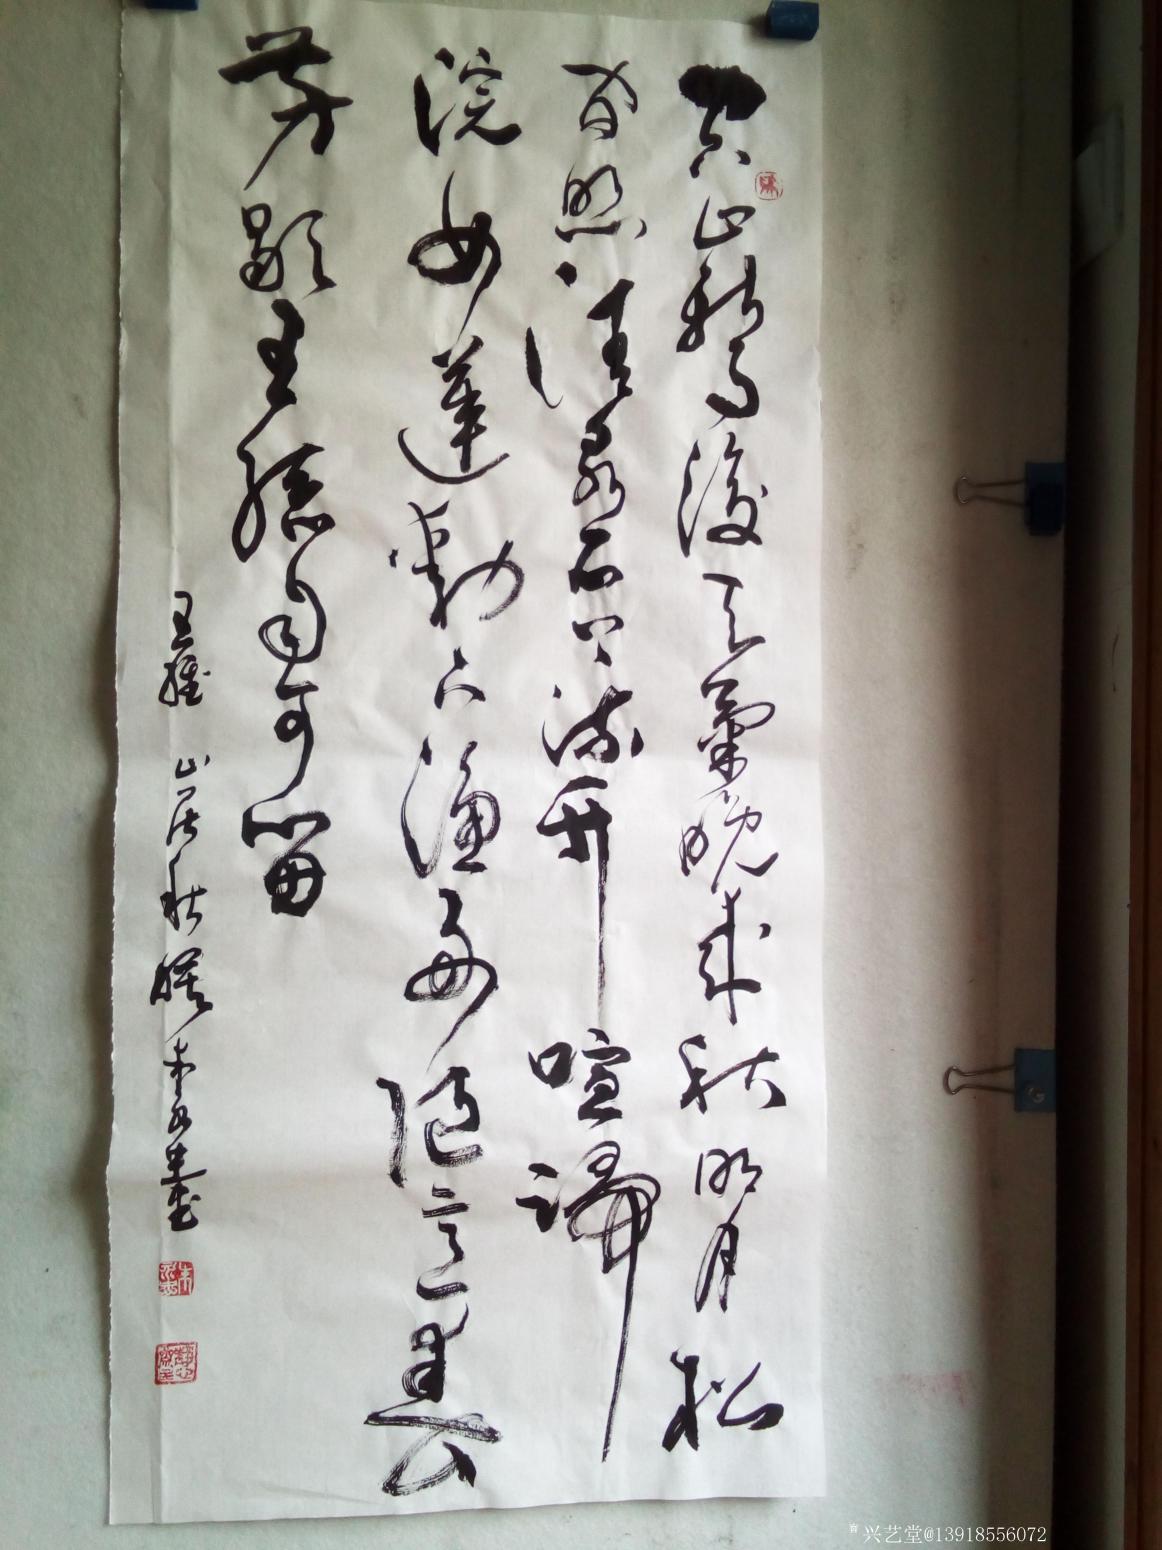 空山新雨後天氣晚來秋明月松
間照清泉石上流竹喧歸
浣女蓮動下漁舟隨意春
芳歇王孫自可留
王維 山居秋暝
兴艺堂@13918556072